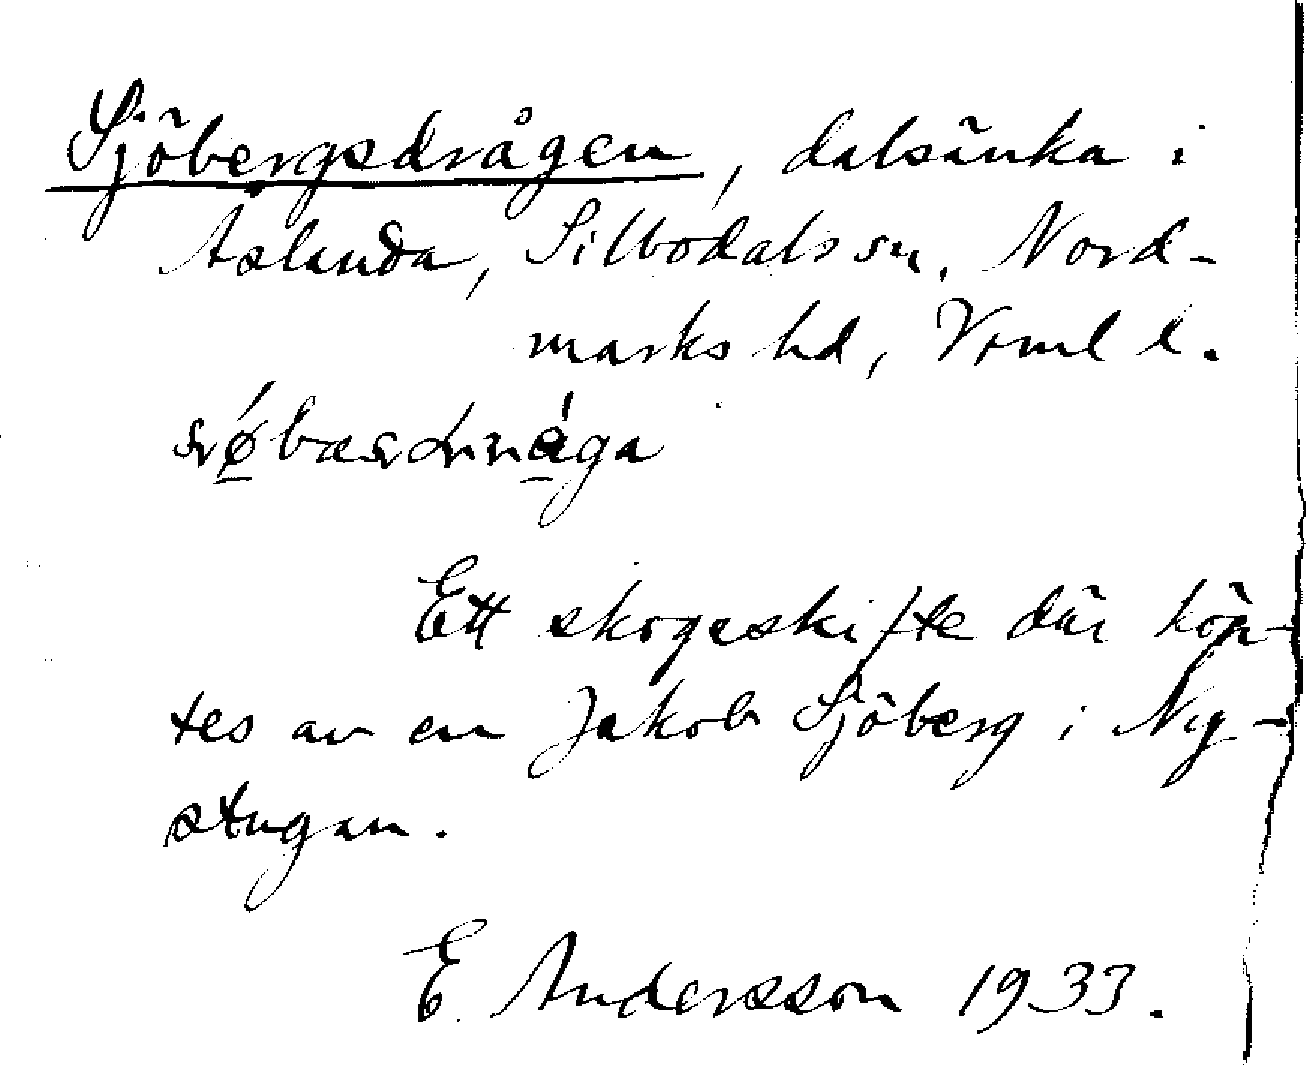 Sjöbergsdrågen, dalsänka i
Aslanda, Silbodals sn, Nord-
marks hd, Vrml l.
Ett skogsskifte där köp-
tes av en Jakob Sjöberg i Ny-
stugan.
E. Andersson 1933.